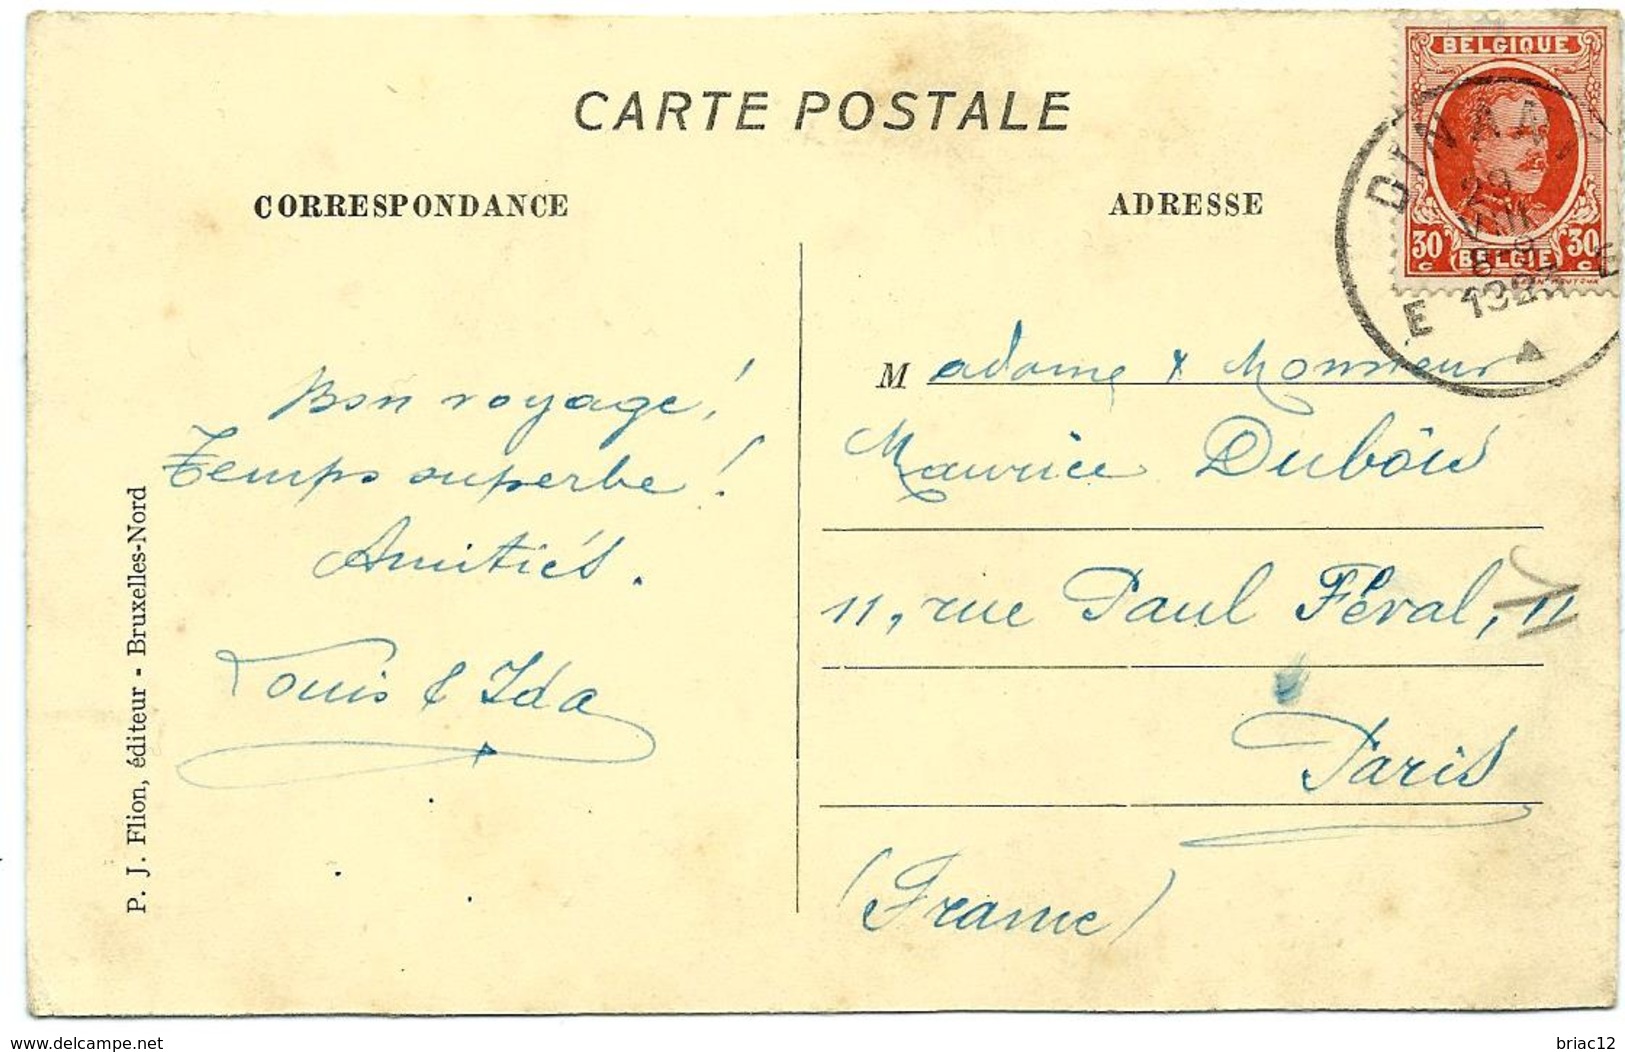 CARTE POSTALE
CORRESPONDANCE
ADRESSE
BELGIQUE
30 c
BELGIE
30 c
DINANT
29
VIII
8-9
E 192 E
Bon voyage!
Temps superbe!
Amitiés.
Louis & Ida
P. J. Flion, éditeur - Bruxelles-Nord
Madame & Monsieur
Maurice Dubois
11, rue Paul Féval, 11
Paris
(France)
www.delcampe.net
briac12